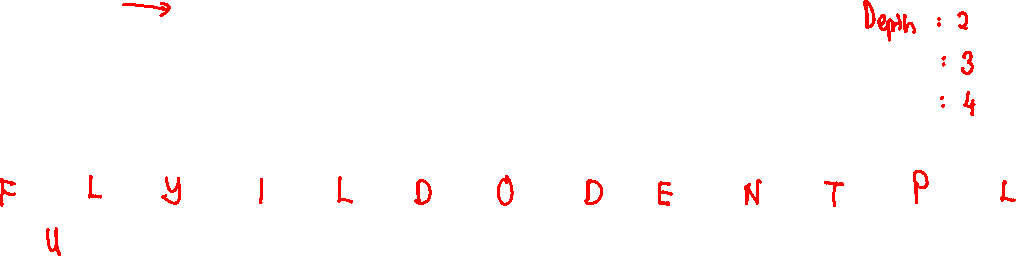 Depth : 2
: 3
: 4
F L Y I L D O D E N T P L
U